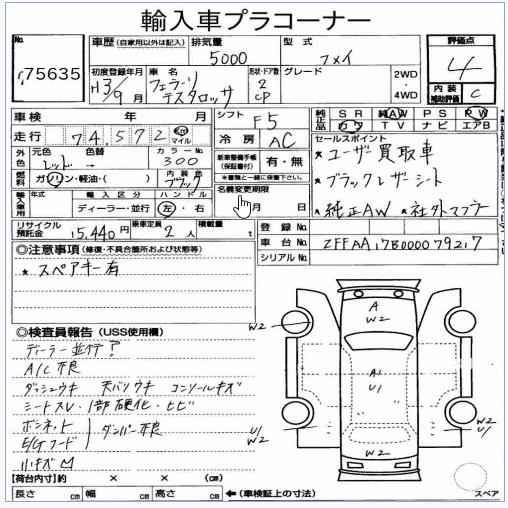 輸入車プラコーナー
No. 75635
車歴 (自家用以外は記入) 排気量 5000 型式 フメイ
評価点 4
初度登録年月 H3/9月 車名 フェラーリ テスタロッサ 形状・ドア数 2 CP グレード 2WD 4WD
内装補助評価 C
車検 年 月 シフト F5
走行 74,572 km マイル 冷房 AC
純正品 SR AW PS PW
カワ TV ナビ エアB
外色 元色 色替 カラーNo. 300
レッド →
燃料 ガソリン・軽油・( ) 内装色 ブラック
新車整備手帳(保証書付) 有・無
※書類と一緒に保管下さい。
セールスポイント
★ユーザー買取車
★ブラックレザーシート
★純正AW ★社外マフラー
輸入車用 年式 輸入区分 ハンドル
ディーラー・並行 左・右
名義変更期限
月 日
リサイクル預託金 15,440円 乗車定員 2人 積載量 t
登録No.
車台No. ZFFAA17B000079217
シリアルNo.
◎注意事項 (修復・不具合箇所および状態等)
★スペアキー有
◎検査員報告 (USS使用欄)
ディーラー並行?
A/C不良
ダッシュウキ 天バリウキ コンソールキズ
シートスレ・1部硬化・ヒビ
ボンネット
E/Gフード ダンパー不良
小キズ
A
W2
W2
A1
U1
W2
W2
U1
W2
W2
U1
スペア
【荷台内寸】約 × × (cm)
長さ cm 幅 cm 高さ cm ←(車検証上の寸法)